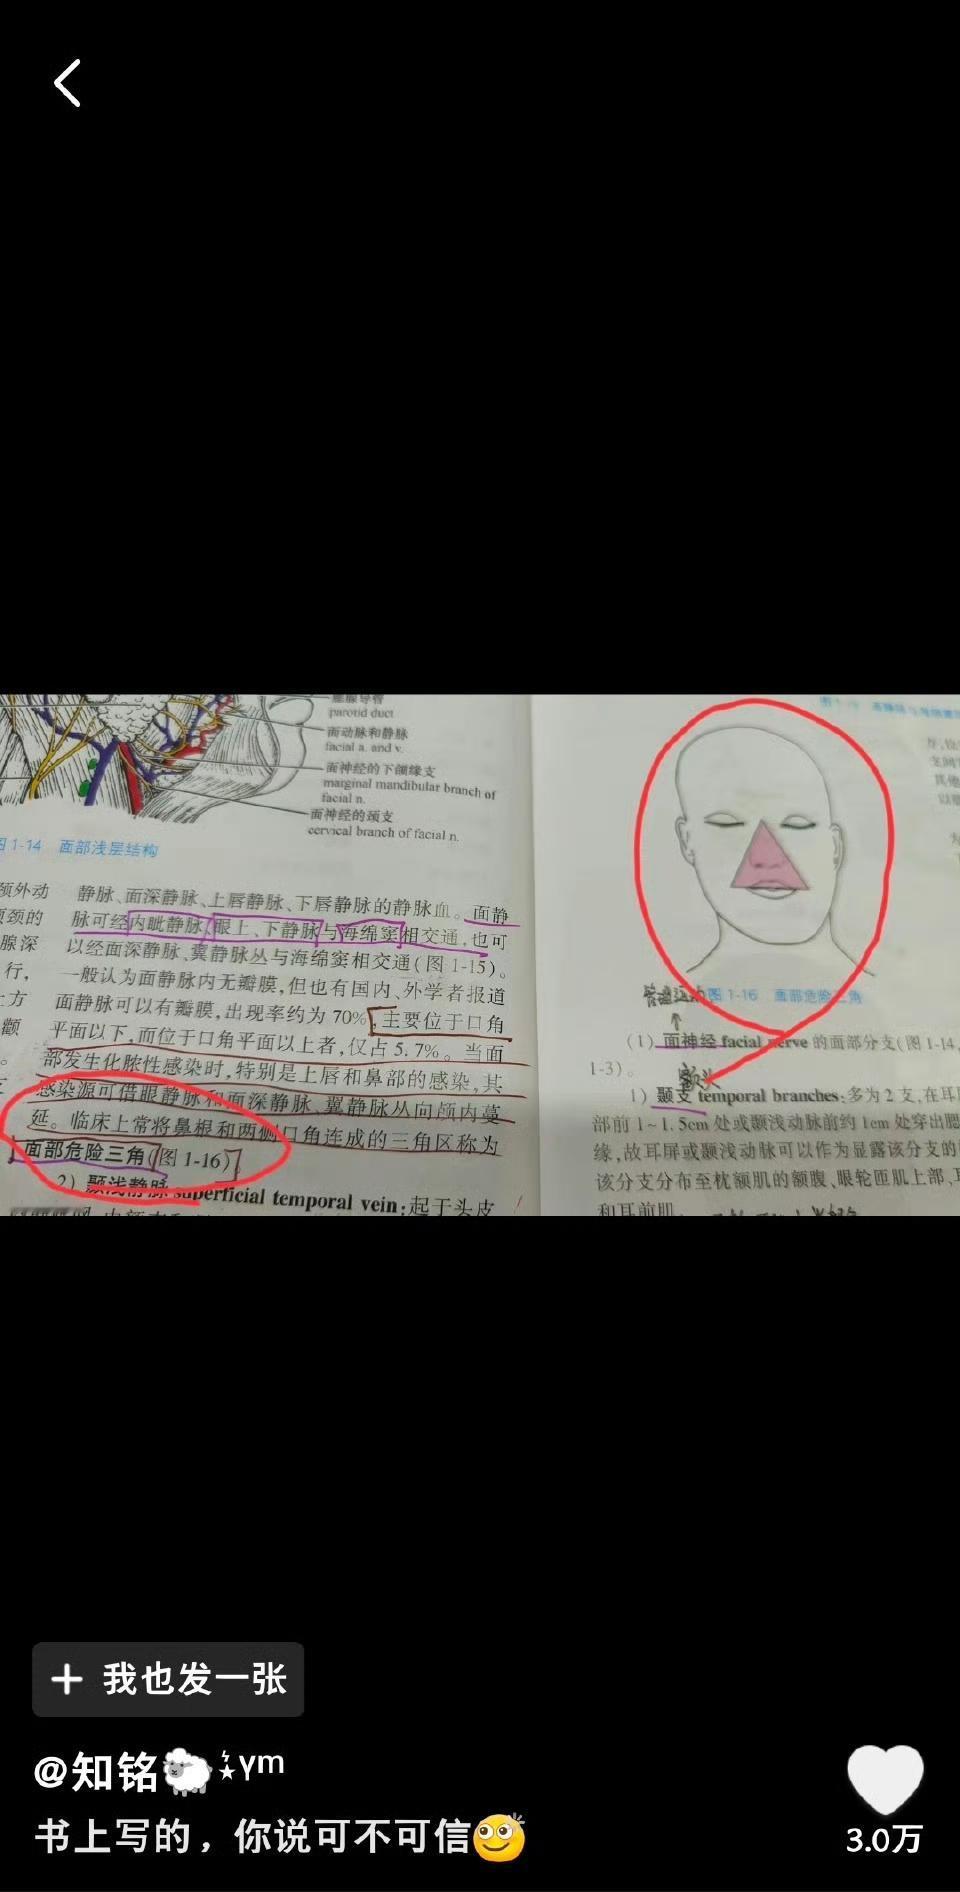 parotid duct
面动脉和静脉
facial a. and v.
面神经的下颌缘支
marginal mandibular branch of
facial n.
面神经的颈支
cervical branch of facial n.
图1-14 面部浅层结构
颈外动
颈的
腺深
行,
上方
颧
静脉、面深静脉、上唇静脉、下唇静脉的静脉血。面静
脉可经内眦静脉、眼上、下静脉与海绵窦相交通,也可
以经面深静脉、翼静脉丛与海绵窦相交通(图1-15)。
一般认为面静脉内无瓣膜,但也有国内、外学者报道
面静脉可以有瓣膜,出现率约为70%,主要位于口角
平面以下,而位于口角平面以上者,仅占5.7%。当面
部发生化脓性感染时,特别是上唇和鼻部的感染,其
感染源可借眼静脉和面深静脉、翼静脉丛向颅内蔓
延。临床上常将鼻根和两侧口角连成的三角区称为
面部危险三角(图1-16)。
2) 颞浅静脉 superficial temporal vein:起于头皮
图1-16 面部危险三角
(1) 面神经 facial nerve 的面部分支(图1-14,
1-3)。
1) 颞支 temporal branches:多为2支,在耳
部前1~1.5cm处或颞浅动脉前约1cm处穿出腮
缘,故耳屏或颞浅动脉可以作为显露该分支的
该分支分布至枕额肌的额腹、眼轮匝肌上部、耳
和耳前肌
我也发一张
@知铭🐑γm
书上写的，你说可不可信
3.0万